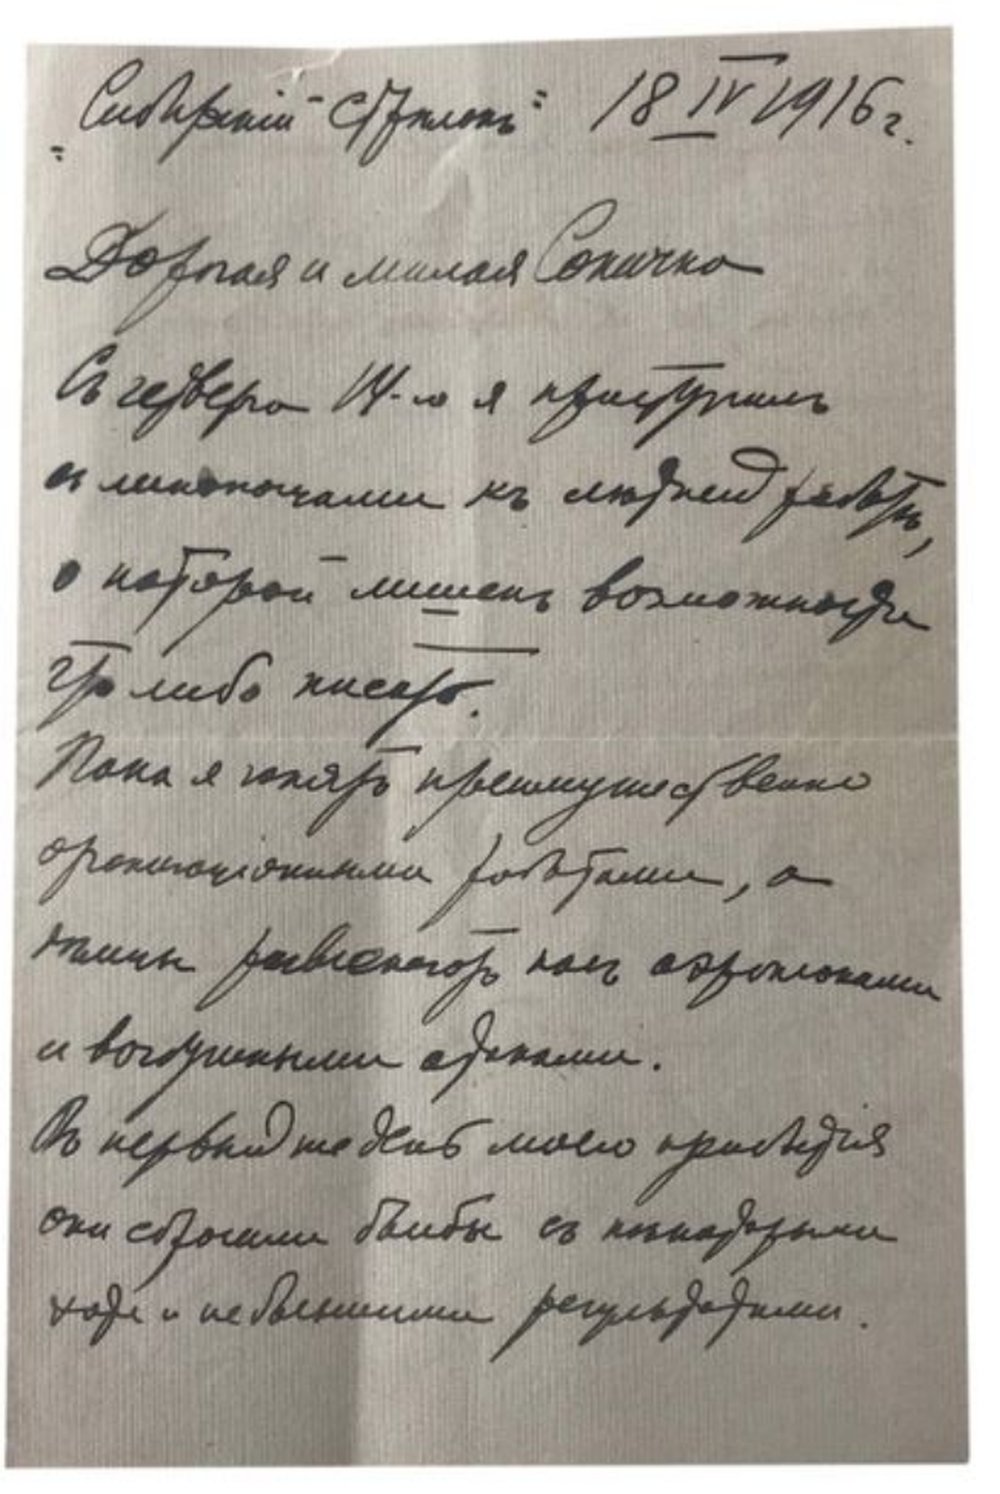 "Сибирскій Стрѣлокъ" 18 IV 1916 г.
Дорогая и милая Сонечка
Съ четверга 14-го я приступилъ
съ миноносцами къ летней работѣ,
о которой лишенъ возможности
что либо писать.
Пока я занятъ преимущественно
организационными работами, а
нѣмцы развлекаютъ насъ аэропланами
и воздушными атаками.
Въ первый же день моего прибытія
они сбросили бомбы съ некоторыми
хотя и небольшими результатами.